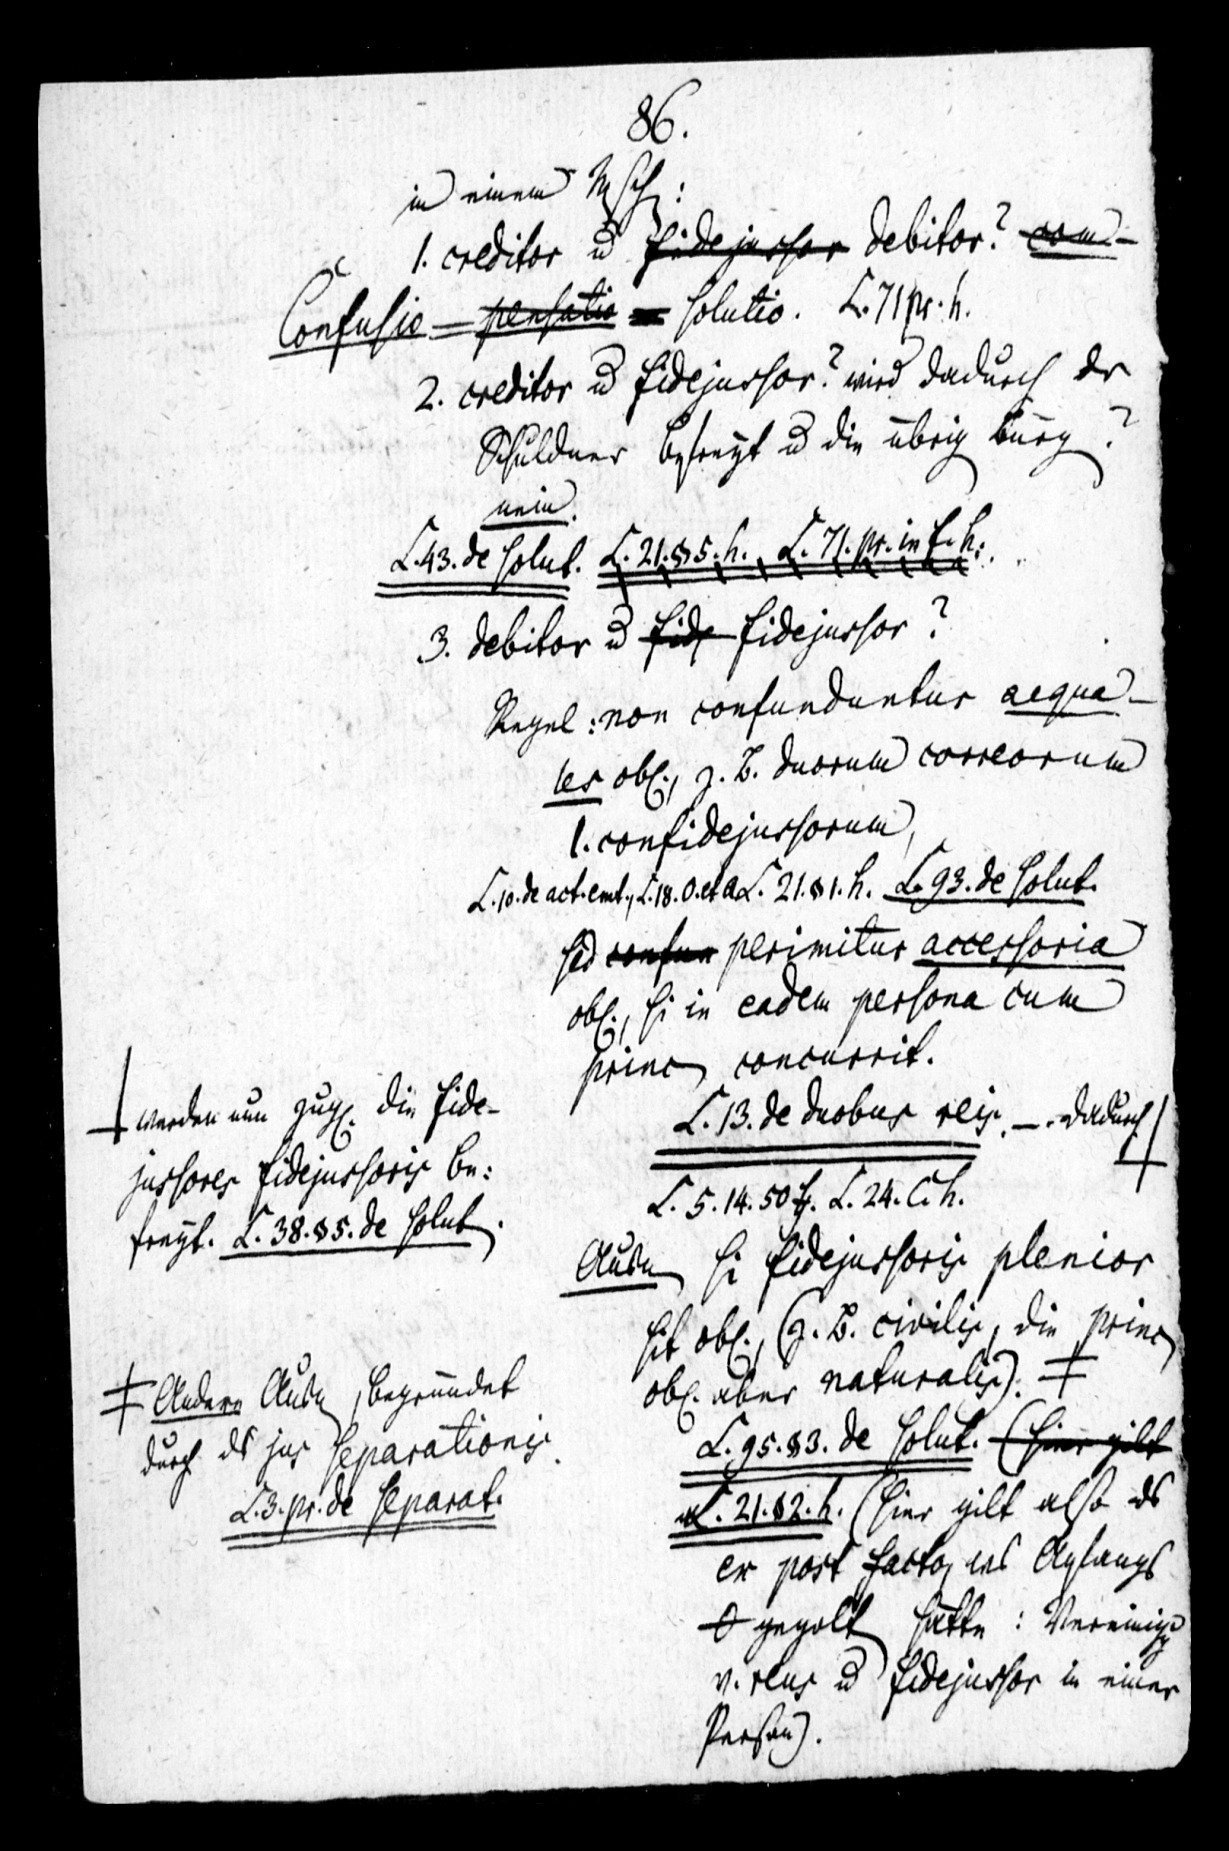 86.
in einem Msch:
1. creditor u fidejussor debitor? com-
Confusio = pensatio = solutio. L. 71 pr. h.
2. creditor u fidejussor? wird dadurch dr
Schuldner befreyt u die übrig Bürg?
nein.
L. 43. de solut. L. 21. §5. h. L. 71. pr. in f. h.
3. debitor u fide fidejussor?
Regel: non confunduntur aequa-
les obl., z. B. duorum correorum
l. confidejussorum,
L. 10. de act. emt., L. 18. O. et A. L. 21. §1. h. L. 93. de solut.
sed confun perimitur accessoria
obl., si in eadem persona cum
princ concurrit.
L. 13. de duobus reis. —. dadurch
werden nun zugl. die fide-
jussores fidejussoris be:
freyt. L. 38. §5. de solut.
L. 5. 14. 50 f. L. 24. C. h.
Ausn si fidejussoris plenior
sit obl., (z. B. civilis, die princ
obl. aber naturalis).
Andere Ausn, begründet
durch ds jus separationis.
L. 3. pr. de separat.
L. 95. §3. de solut. (hier gilt
L. 21. §2. h. (hier gilt also ds
ex post facto, was Anfangs
0 gegolt hätte: Vereinigg
v. reus u fidejussor in einer
Person).